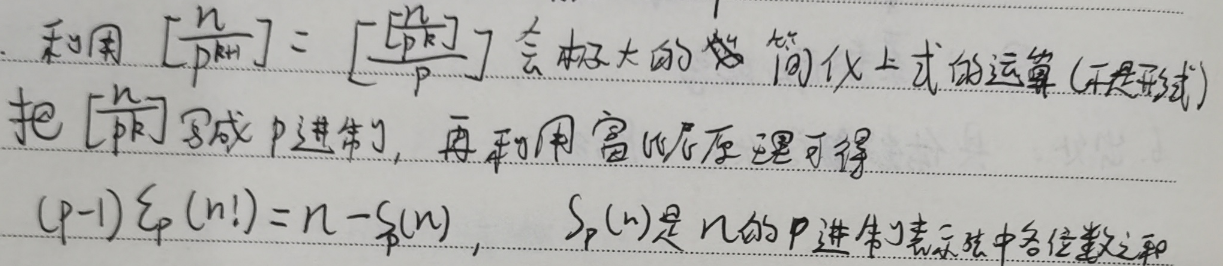 . 利用 [n/p^{k+1}] = [[n/p^k]/p] 会极大的 简化上式的运算(不是形式)
把 [n/p^k] 写成 p 进制, 再利用富比尼原理可得
(p-1) ε_p (n!) = n - S_p(n), S_p(n)是 n的 p 进制表示法中各位数之和